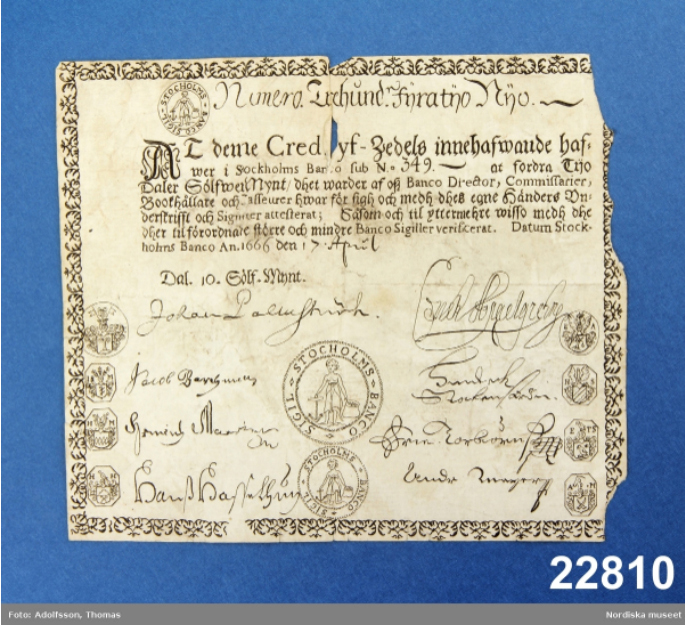 STOCHOLMS BANCO SIGIL
Numero. Trehund. Fyratijo Nijo.
AT denne Cred yf-Zedels innehafwande haf-
wer i Stockholms Banco sub No. 349. at fordra Tijo
Daler Sölfwer Mynt/ dhet warder af oß Banco Director, Commissarier,
Bookhållare och Casseurer hwar för sigh och medh dhes egne Händers Vn-
derskrifft och Signeter attesterat; Såsom och til yttermehre wisso medh dhe
dher til förordnade större och mindre Banco Sigiller verificerat. Datum Stock-
holms Banco An. 1666 den 17 April
Dal. 10. Sölf. Mynt.
Johan Palmstruch.
STOCHOLMS BANCO SIGIL
Jacob
Hans
STOCHOLMS BANCO SIGIL
22810
Foto: Adolfsson, Thomas
Nordiska museet